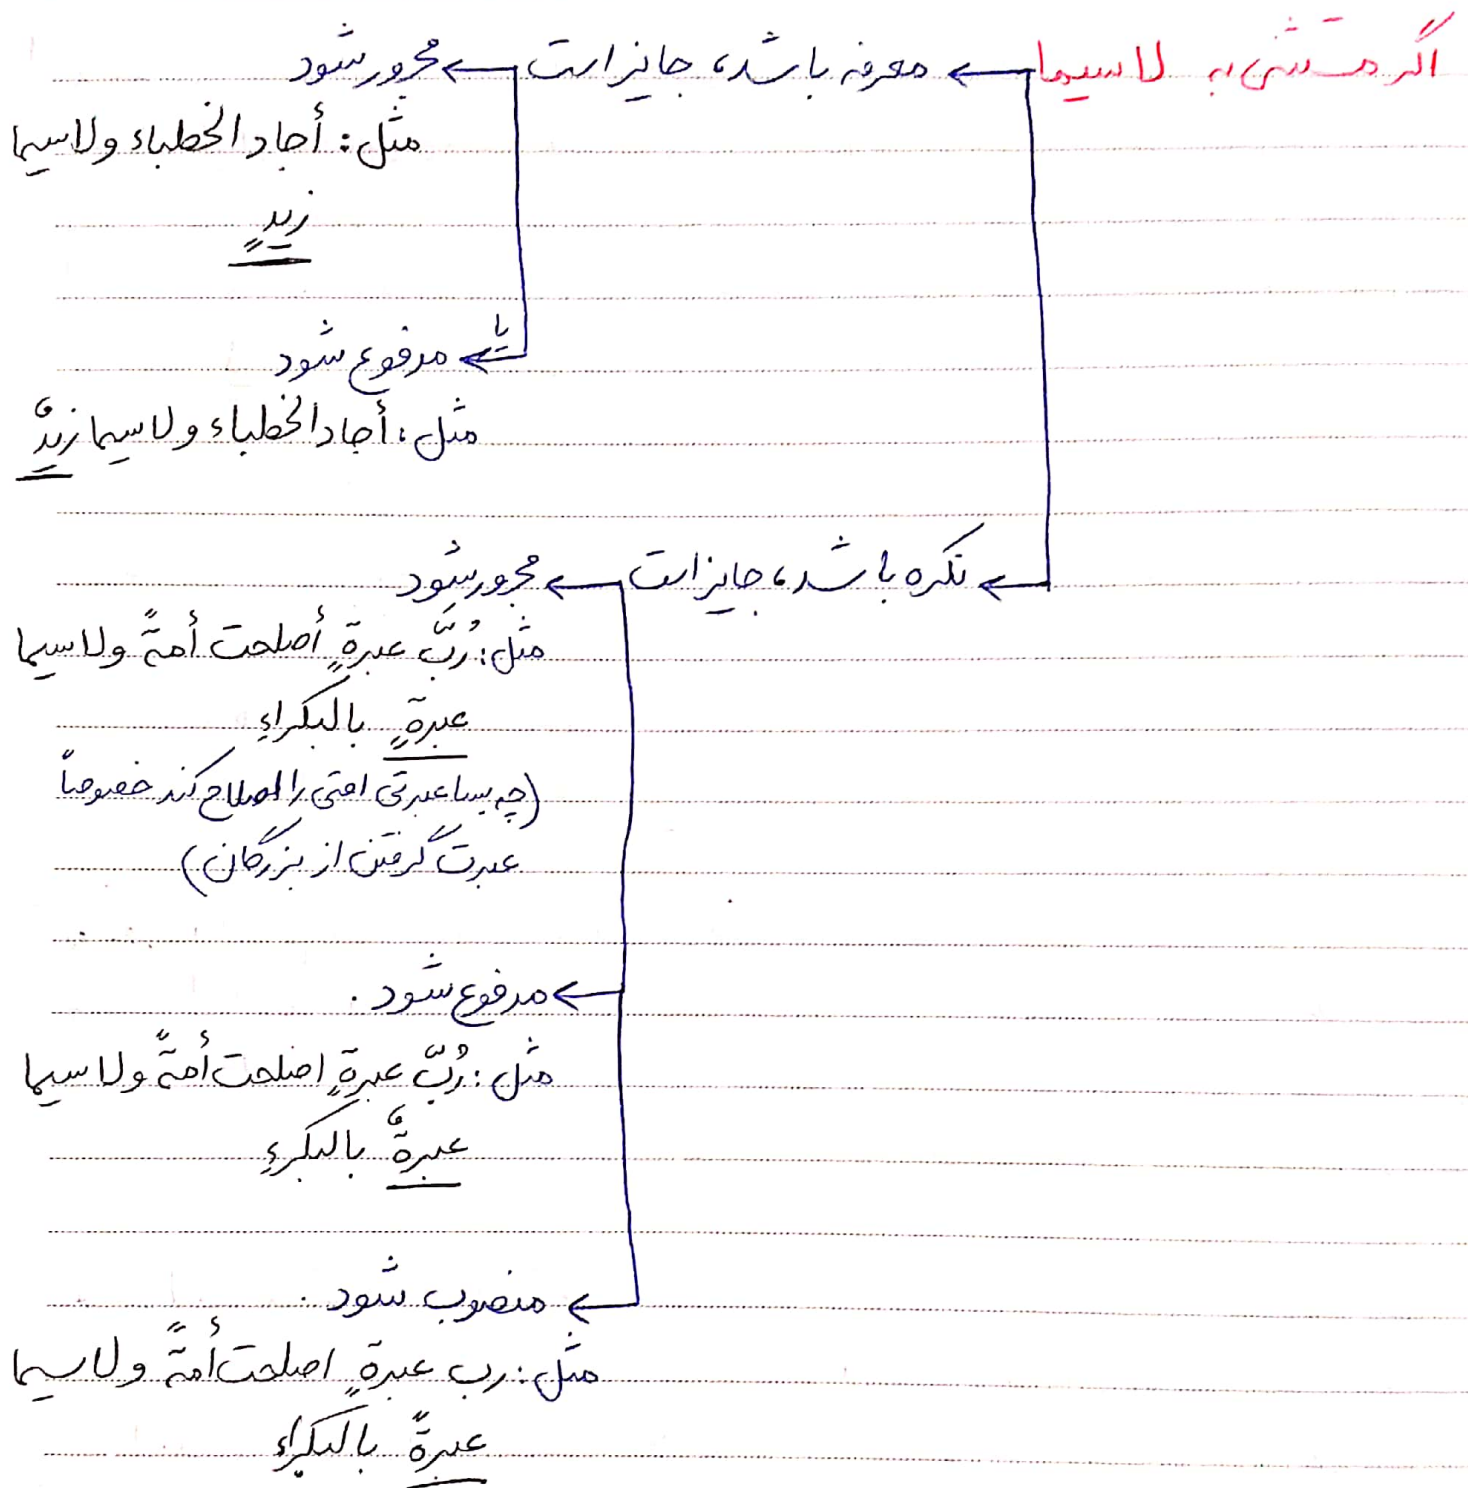 اگر مستثنی به لاسیما ← معرفه باشد، جایز است ← مجرور شود
مثل: أجاد الخطباء ولاسیما
زیدٍ
یا ← مرفوع شود
مثل: أجاد الخطباء ولاسیما زیدٌ
← نکره باشد، جایز است ← مجرور شود
مثل: رُبَّ عبرةٍ أصلحت أمةً ولاسیما
عبرةٍ بالبکراءِ
(چه بسا عبرتی امتی را اصلاح کند خصوصاً
عبرت گرفتن از بزرگان)
← مرفوع شود.
مثل: رُبّ عبرةٍ اصلحت أمةً ولاسیما
عبرةٌ بالبکرءِ
← منصوب شود.
مثل: رب عبرةٍ اصلحت أمةً ولاسیما
عبرةً بالبکراءِ